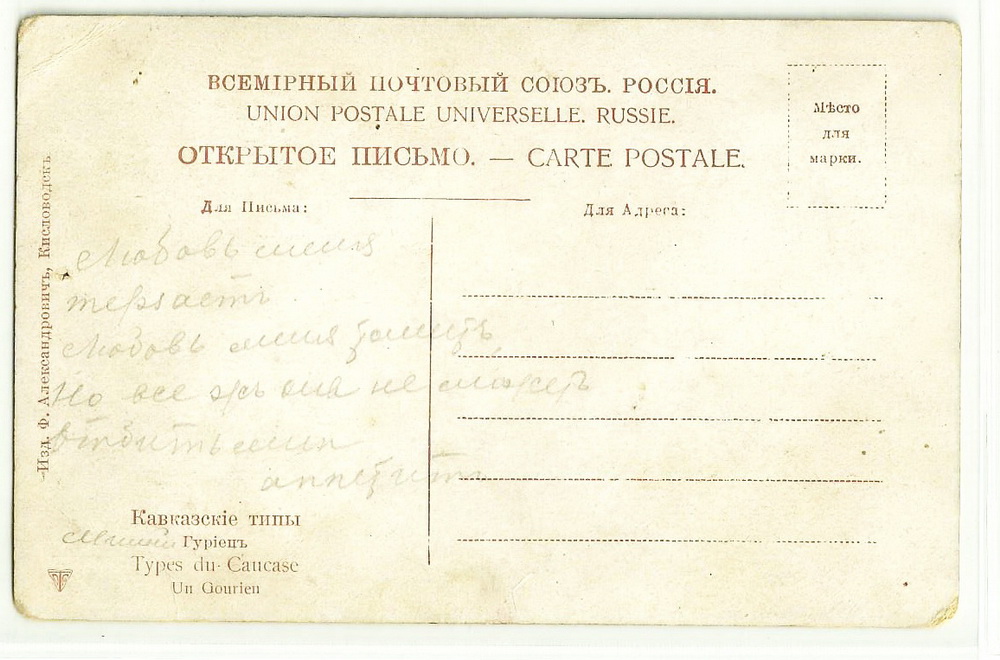 ВСЕМІРНЫЙ ПОЧТОВЫЙ СОЮЗЪ. РОССІЯ.
UNION POSTALE UNIVERSELLE. RUSSIE.
ОТКРЫТОЕ ПИСЬМО. — CARTE POSTALE.
Мѣсто
для
марки.
Для Письма:
Для Адреса:
Любовь меня
терзаетъ
Любовь меня томитъ,
Но все жъ она не можетъ
Отбить
аппетитъ
Изд. Ф. Александровичъ, Кисловодскъ.
Кавказскіе типы
Гуріецъ
Types du Caucase
Un Gourien